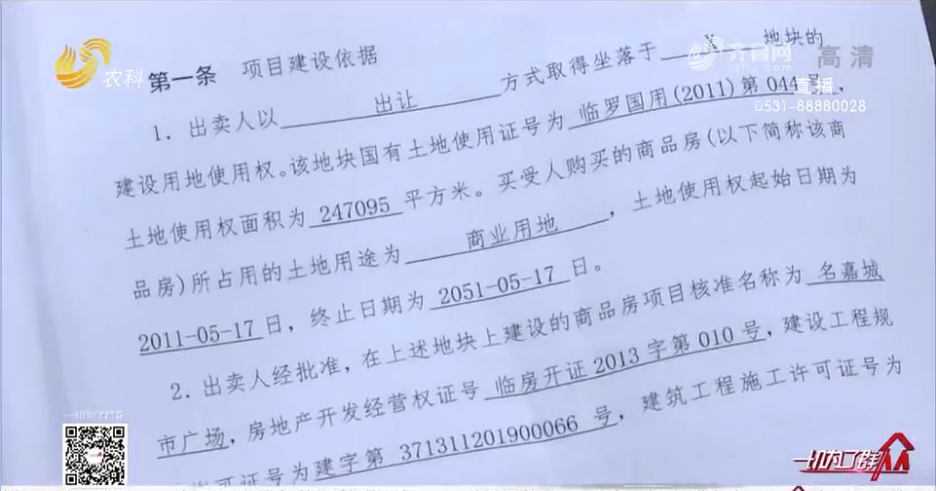 农科
齐鲁网
高清
直播
0531-88880028
第一条 项目建设依据
1. 出卖人以 出让 方式取得坐落于 X 地块的
建设用地使用权。该地块国有土地使用证号为 临罗国用(2011)第 044 号,
土地使用权面积为 247095 平方米。买受人购买的商品房(以下简称该商
品房)所占用的土地用途为 商业用地 ,土地使用权起始日期为
2011-05-17 日,终止日期为 2051-05-17 日。
2. 出卖人经批准,在上述地块上建设的商品房项目核准名称为 名嘉城
市广场,房地产开发经营权证号 临房开证 2013 字第 010 号,建设工程规
可证号为 建字第 371311201900066 号,建筑工程施工许可证号为
一切为了群众